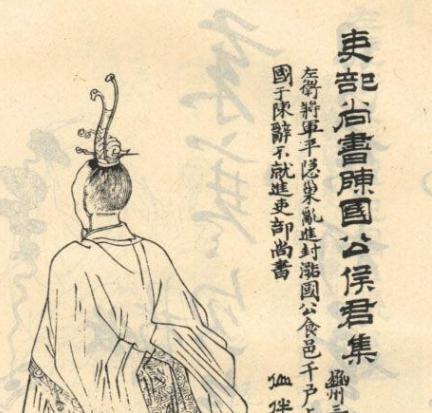 吏部尚書陳國公侯君集
州三
左衛將軍平隱巢亂進封潞國公食邑千戶
國于陳辭不就進吏部尚書